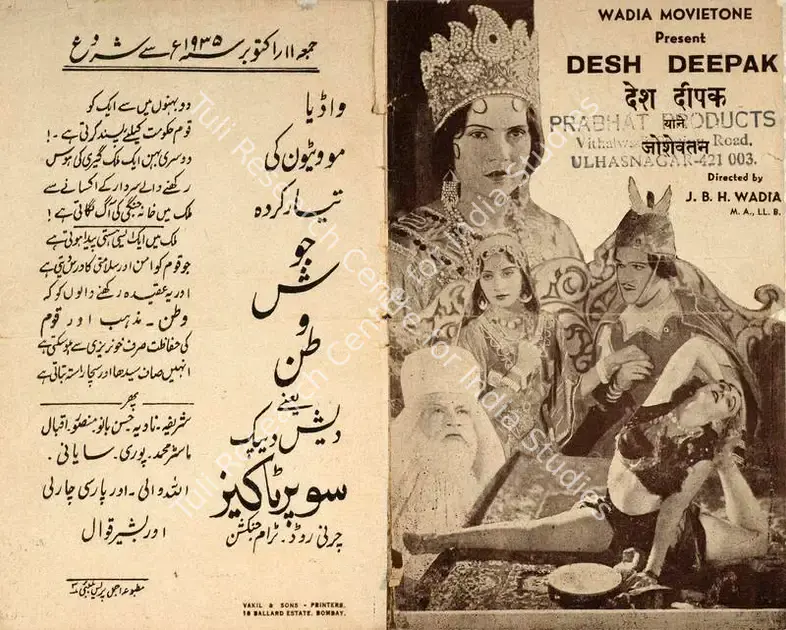 جمعہ ۱۱ اکتوبر سنہ ۱۹۳۵ء سے شروع
واڈیا
موویٹون کی
تیار کردہ
جوش
و
طن
یعنے
دیش دیپک
سوپر ٹاکیز
چرنی روڈ۔ ٹرام جنکشن
دو بہنوں میں سے ایک کو
قوم حکومت کیلئے پسند کرتی ہے۔!
دوسری بہن ایک ملک گیری کی ہوس
رکھنے والے سردار کے اکسانے سے
ملک میں خانہ جنگی کی آگ لگاتی ہے!
ملک میں ایک ایسی ہستی پیدا ہوتی ہے
جو قوم کو امن اور سلامتی کا درس دیتی ہے
اور یہ عقیدہ رکھنے والوں کو کہ
وطن۔ مذہب اور قوم
کی حفاظت صرف خونریزی سے ہوسکتی ہے
انہیں صاف سیدھا اور سچا راستہ بتاتی ہے
پھر
شریفہ۔ نادیہ حسن بانو منصور۔ اقبال
ماسٹر محمد۔ پوری۔ سایانی۔
اللہ والی۔ اور پارسی چارلی
اور بشیر قوال
VAKIL & SONS - PRINTERS.
18 BALLARD ESTATE. BOMBAY.
WADIA MOVIETONE
Present
DESH DEEPAK
देश दीपक
याने
जोशेवतन
Directed by
J. B. H. WADIA
M. A., LL. B.
PRABHAT PRODUCTS
Road,
ULHASNAGAR-421 003.
Tuli Research Centre for India Studies
Tuli Research Centre for India Studies